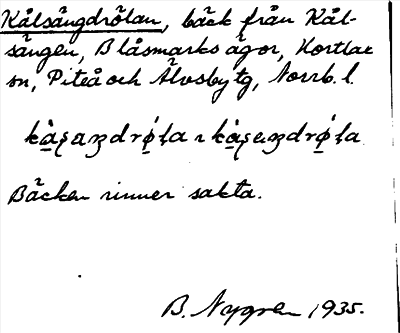 Kålsångdrölan, bäck från Kål-
sången, Blåsmarks ägor, Hortlax
sn, Piteå och Älvsby tg, Norrb. l.
Bäcken rinner sakta.
B. Nygren 1935.